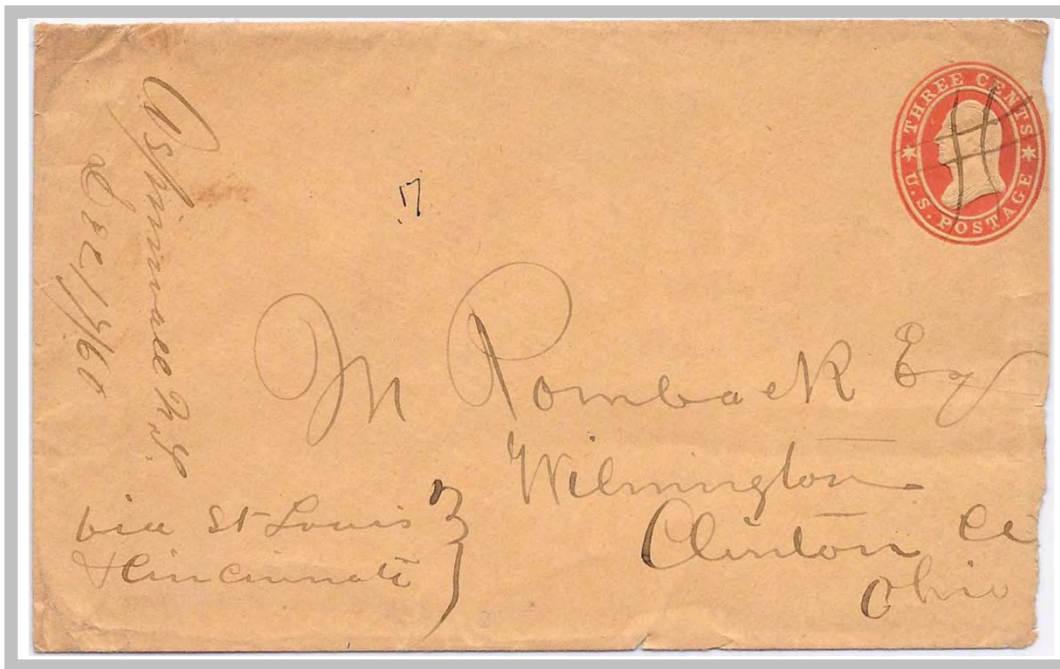 THREE CENTS
U.S. POSTAGE
Aspinwall N.T.
Dec 1/60
17
M Rombach Esq
Wilmington
Clinton Co
Ohio
via St Louis
& Cincinnati